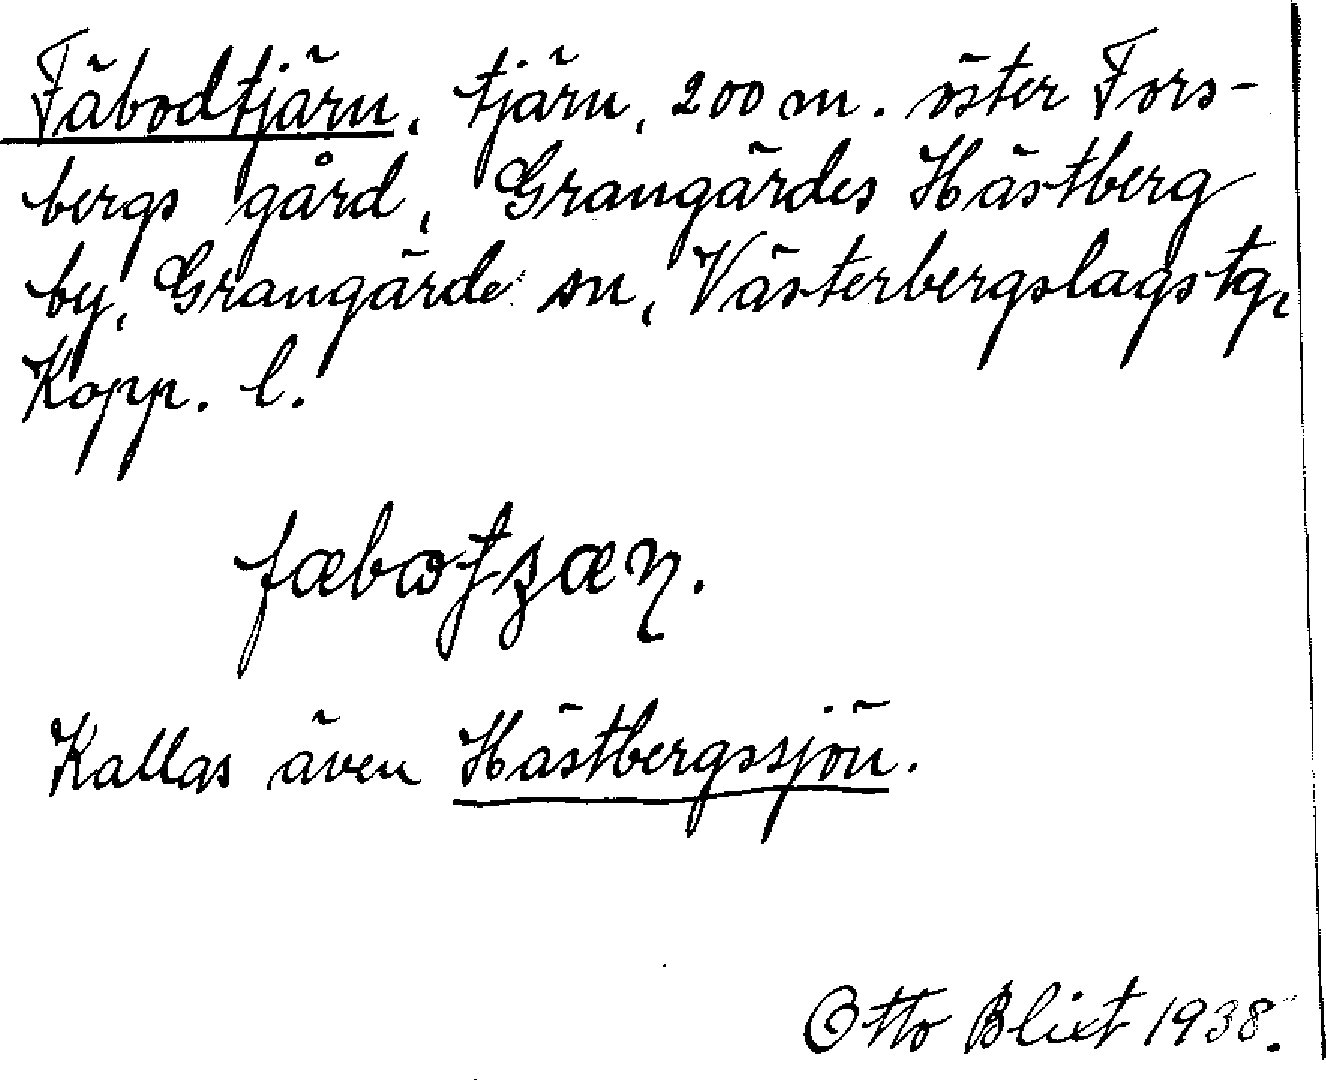 Fäbodtjärn, tjärn, 200 m. öster Fors-
bergs gård, Grangärdes Hästberg
by, Grangärde sn, Västerbergslags tg,
Kopp. l.
Kallas även Hästbergssjön.
Otto Blixt 1938.